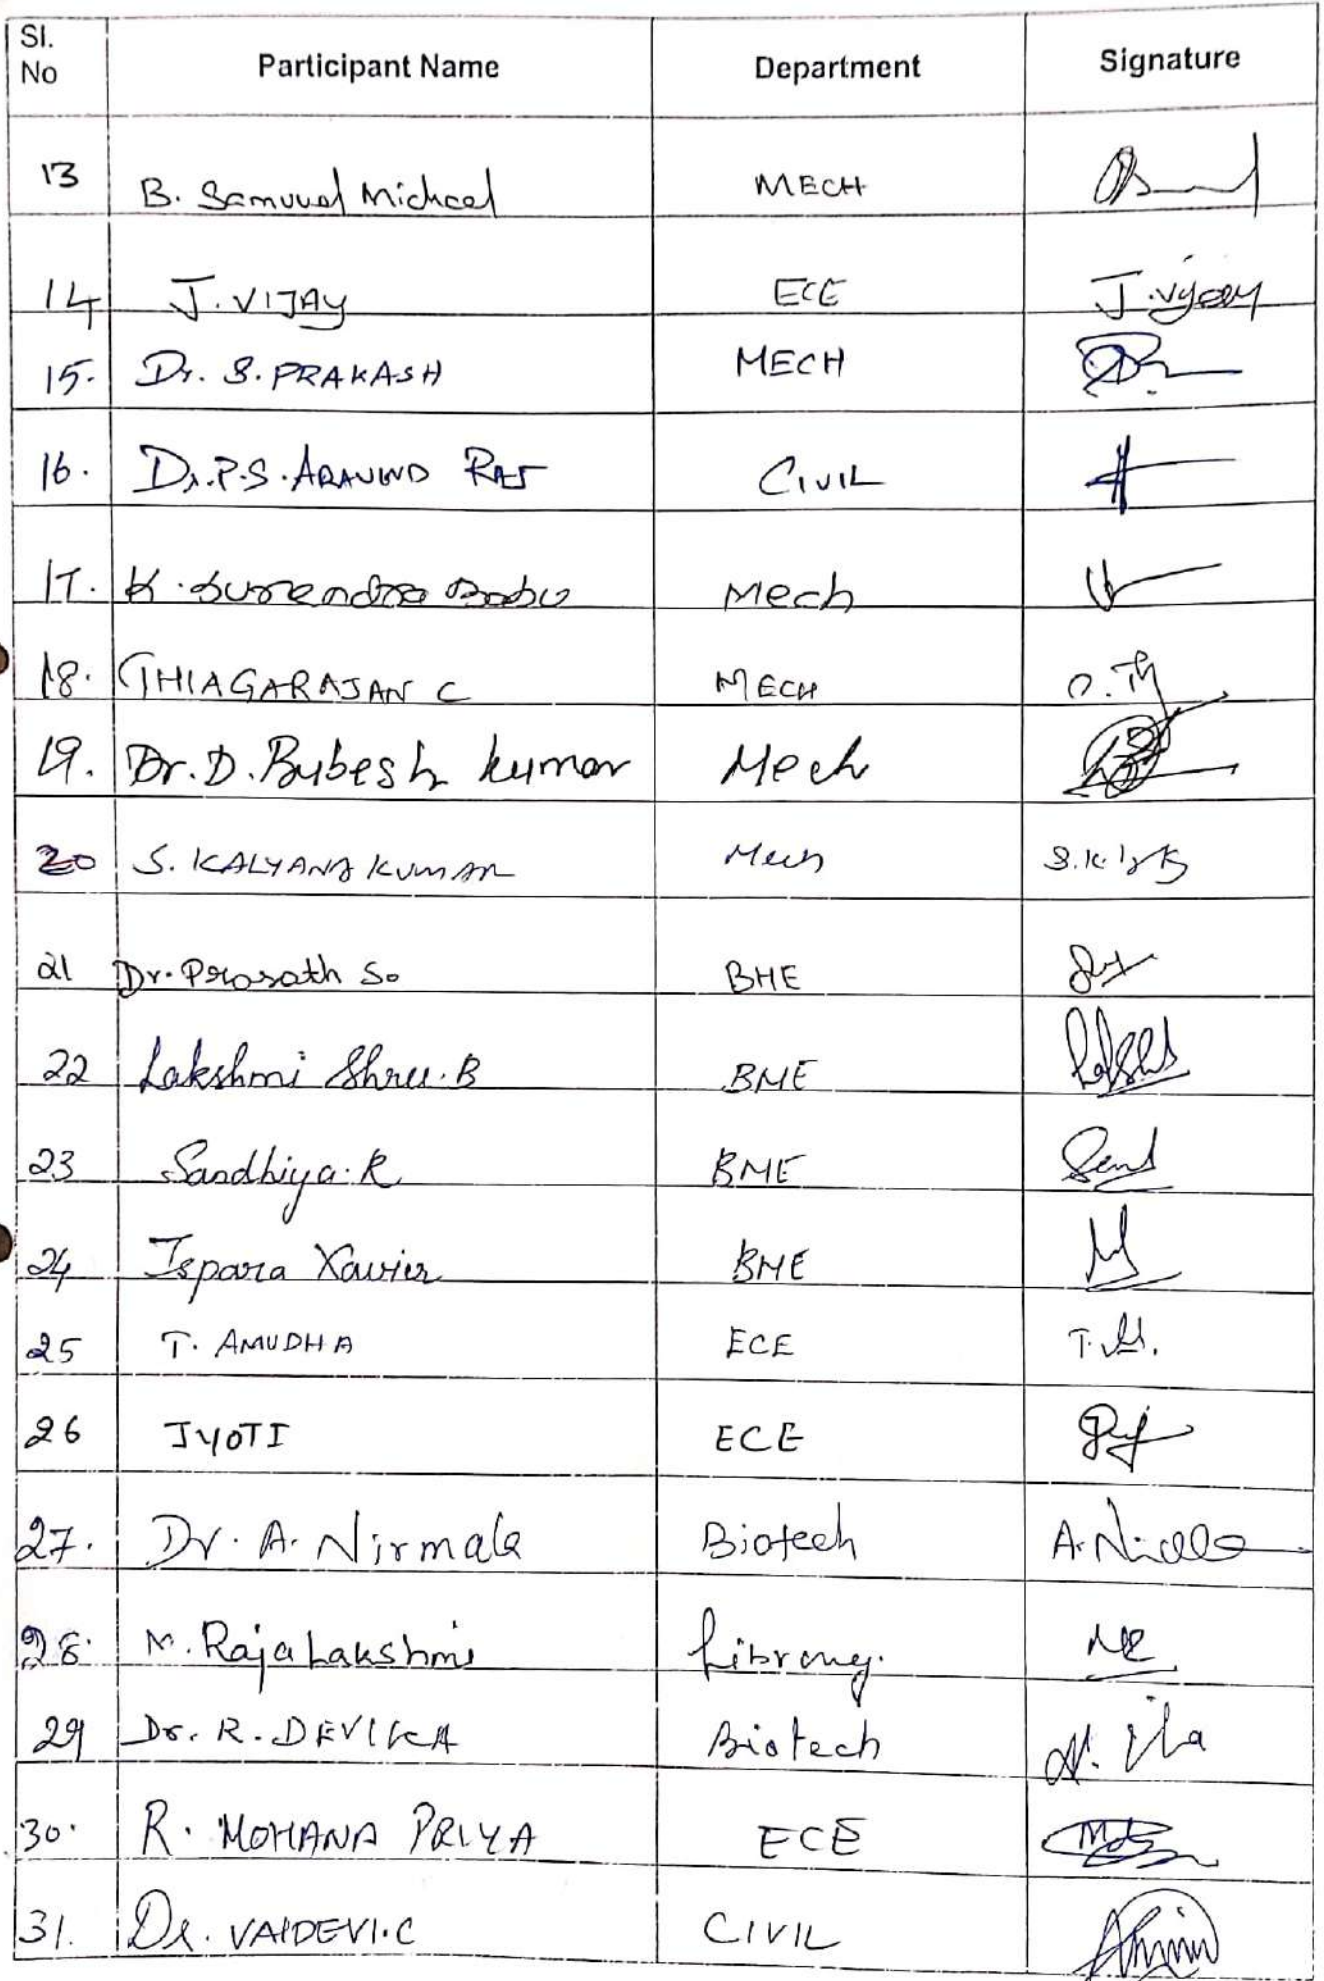 Sl. No Participant Name Department Signature
13 B. Samuvel Michael MECH
14 J. VIJAY ECE J. Vijay
15. Dr. S. PRAKASH MECH
16. Dr. P.S. ARAVIND RAJ CIVIL
17. K. Surendra Babu Mech
18. THIAGARAJAN C MECH
19. Dr. D. Bubesh kumar Mech
20 S. KALYANA KUMAR Mech
21 Dr. Prasath S. BME
22 Lakshmi Shree. B BME
23 Sandhiya. R BME
24 Ispara Xavier BME
25 T. AMUDHA ECE
26 JYOTI ECE
27. Dr. A. Nirmala Biotech
28. M. RajaLakshmi Library.
29 Dr. R. DEVIKA Biotech
30. R. MOHANA PRIYA ECE
31. Dr. VAIDEVI. C CIVIL